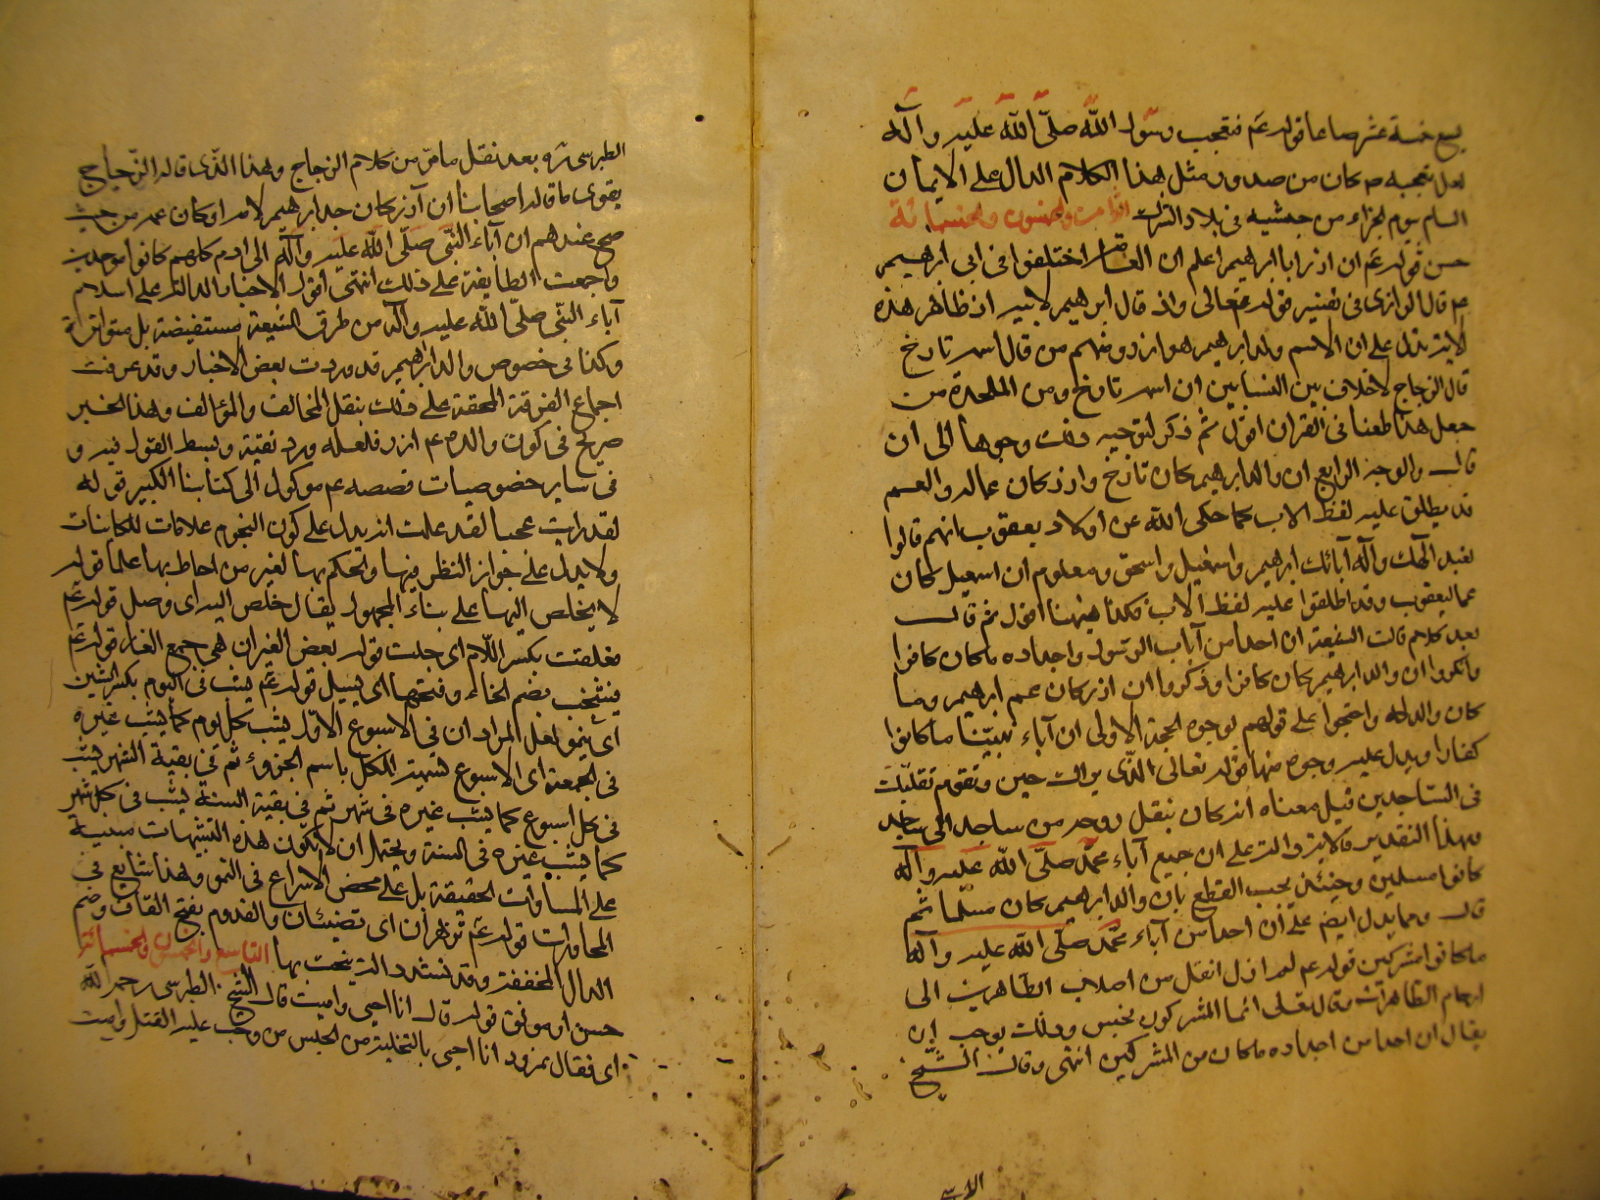 يسع خمسة عشر صاعا قوله عم فتعجب رسول الله صلى الله عليه وآله
لعل تعجبه ص كان من صدور مثل هذا الكلام الدال على الايمان
السام بيوم الجزاء من حبشيه في بلاد الترك الثامن والخمسون والخمسمائة
حسن قوله عم ان ازر ابا ابراهيم اعلم ان العامة اختلفوا في ابي ابراهيم
ع قال الرازي في تفسير قوله تعالى واذ قال ابراهيم لابيه ازر ظاهر هذه
الاية يدل على ان اسم والد ابراهيم هو ازر ومنهم من قال اسمه تارخ
قال الزجاج لا خلاف بين النسابين ان اسمه تارخ ومن الملحدة من
جعل هذا طعنا في القران اقول ثم ذكر لتوجيه ذلك وجوها الى ان
قال والوجه الرابع ان والد ابراهيم كان تارخ وازر كان عما له والعم
قد يطلق عليه لفظ الاب كما حكى الله عن اولاد يعقوب انهم قالوا
نعبد الهك وآله آبائك ابراهيم واسمعيل واسحق ومعلوم ان اسمعيل كان
عما ليعقوب وقد اطلقوا عليه لفظ الاب فكذا هيهنا اقول ثم قال
بعد كلام قالت الشيعة ان احدا من آباء الرسول واجداده ما كان كافرا
وانكروا ان والد ابراهيم كان كافرا وذكروا ان ازر كان عم ابراهيم وما
كان والدا له واحتجوا على قولهم بوجوه الحجة الاولى ان آباء نبينا ما كانوا
كفارا ويدل عليه وجوه منها قوله تعالى الذي يراك حين تقوم وتقلبك
في الساجدين قيل معناه انه كان ينقل روحه من ساجد الى ساجد
وبهذا التقدير فالاية دالة على ان جميع آباء محمد صلى الله عليه وآله
كانوا مسلمين وحينئذ يجب القطع بان والد ابراهيم كان مسلما ثم
قال ومما يدل ايضا على ان احدا من آباء محمد صلى الله عليه وآله
ما كانوا مشركين قوله عم لم ازل انقل من اصلاب الطاهرين الى
ارحام الطاهرات وقال تعالى انما المشركون نجس وذلك يوجب ان
يقال ان احدا من اجداده ما كان من المشركين انتهى وقال الشيخ
الطبرسي ره بعد نقل ما مر من كلام الزجاج وهذا الذي قاله الزجاج
يقوي ما قاله اصحابنا ان آزر كان جد ابراهيم لامه او كان عمه من حيث
صح عندهم ان آباء النبي صلى الله عليه وآله الى ادم كلهم كانوا موحدين
واجمعت الطايفة على ذلك انتهى اقول الاخبار الدالة على اسلام
آباء النبي صلى الله عليه وآله من طرق الشيعة مستفيضة بل متواترة
وكذا في خصوص والد ابراهيم قد وردت بعض الاخبار وقد عرفت
اجماع الفرقة المحقة على ذلك بنقل المخالف والمؤالف وهذا الخبر
صريح في كون والده عم ازر فلعله ورد تقية وبسط القول فيه و
في ساير خصوصيات قصصه عم موكول الى كتابنا الكبير قوله
لقد رايت عجبا لقد علمت انه يدل على كون النجوم علامات للكاينات
ولا يدل على جواز النظر فيها والحكم بها لغير من احاط بها علما قوله
لا يخلص اليها على بناء المجهول يقال خلص اليه اي وصل قوله عم
فغلقت بكسر اللام اي حبلت قوله بعض الغيران هي جمع الغار قوله عم
فيشخب بضم الخاء وفتحها اي يسيل قوله عم يشب في اليوم بكسر الشين
اي ينمو لعل المراد ان في الاسبوع الاول يشب كل يوم كما يشب غيره
في الجمعة اي الاسبوع تسمية للكل باسم الجزء ثم في بقية الشهر يشب
في كل اسبوع كما يشب غيره في شهر ثم في بقية السنة يشب في كل شهر
كما يشب غيره في السنة ويحتمل ان لا تكون هذه التشبيهات مبنية
على المساوات الحقيقة بل على محض الاسراع في النمو وهذا شايع في
المحاورات قوله عم تزهران اي تضيئان والقدوم بفتح القاف وضم
الدال المخففة وقد تشدد الة ينحت بها التاسع والخمسون والخمسمائة
حسن او موثق قوله قال انا احيي واميت قال الشيخ الطبرسي رحمه الله
اي فقال نمرود انا احيي بالتخلية من الحبس من وجب عليه القتل واميت